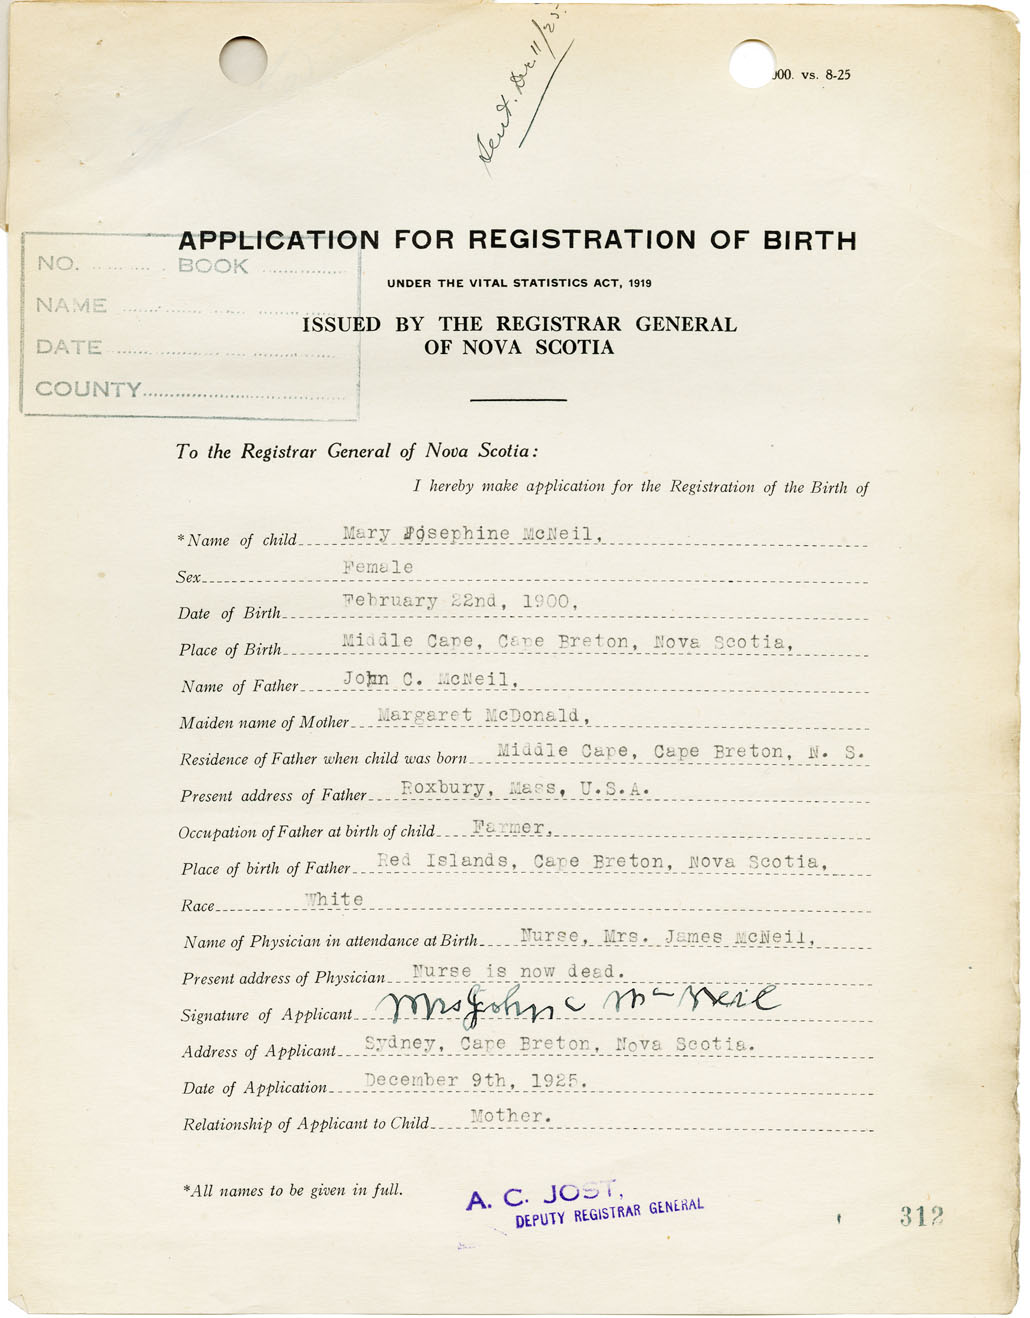 Sent. Dec. 11/25.
00. vs. 8-25
APPLICATION FOR REGISTRATION OF BIRTH
NO. BOOK
UNDER THE VITAL STATISTICS ACT, 1919
NAME
ISSUED BY THE REGISTRAR GENERAL
DATE
OF NOVA SCOTIA
COUNTY
To the Registrar General of Nova Scotia:
I hereby make application for the Registration of the Birth of
*Name of child Mary Josephine McNeil,
Sex Female
Date of Birth February 22nd, 1900,
Place of Birth Middle Cape, Cape Breton, Nova Scotia,
Name of Father John C. McNeil,
Maiden name of Mother Margaret McDonald,
Residence of Father when child was born Middle Cape, Cape Breton, N. S.
Present address of Father Roxbury, Mass, U.S.A.
Occupation of Father at birth of child Farmer,
Place of birth of Father Red Islands, Cape Breton, Nova Scotia,
Race White
Name of Physician in attendance at Birth Nurse, Mrs. James McNeil,
Present address of Physician Nurse is now dead.
Signature of Applicant Mrs John C McNeil
Address of Applicant Sydney, Cape Breton, Nova Scotia.
Date of Application December 9th, 1925.
Relationship of Applicant to Child Mother.
*All names to be given in full.
A. C. JOST,
DEPUTY REGISTRAR GENERAL
312